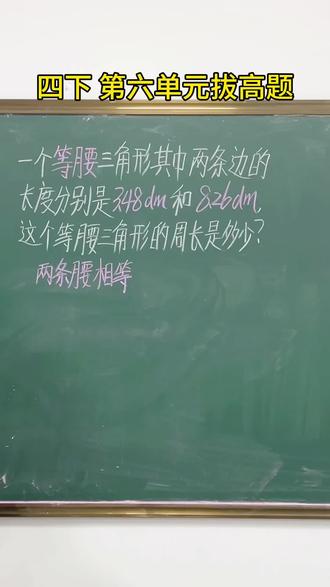 四下 第六单元拔高题
一个等腰三角形其中两条边的
长度分别是3.48dm和8.26dm,
这个等腰三角形的周长是多少?
两条腰相等